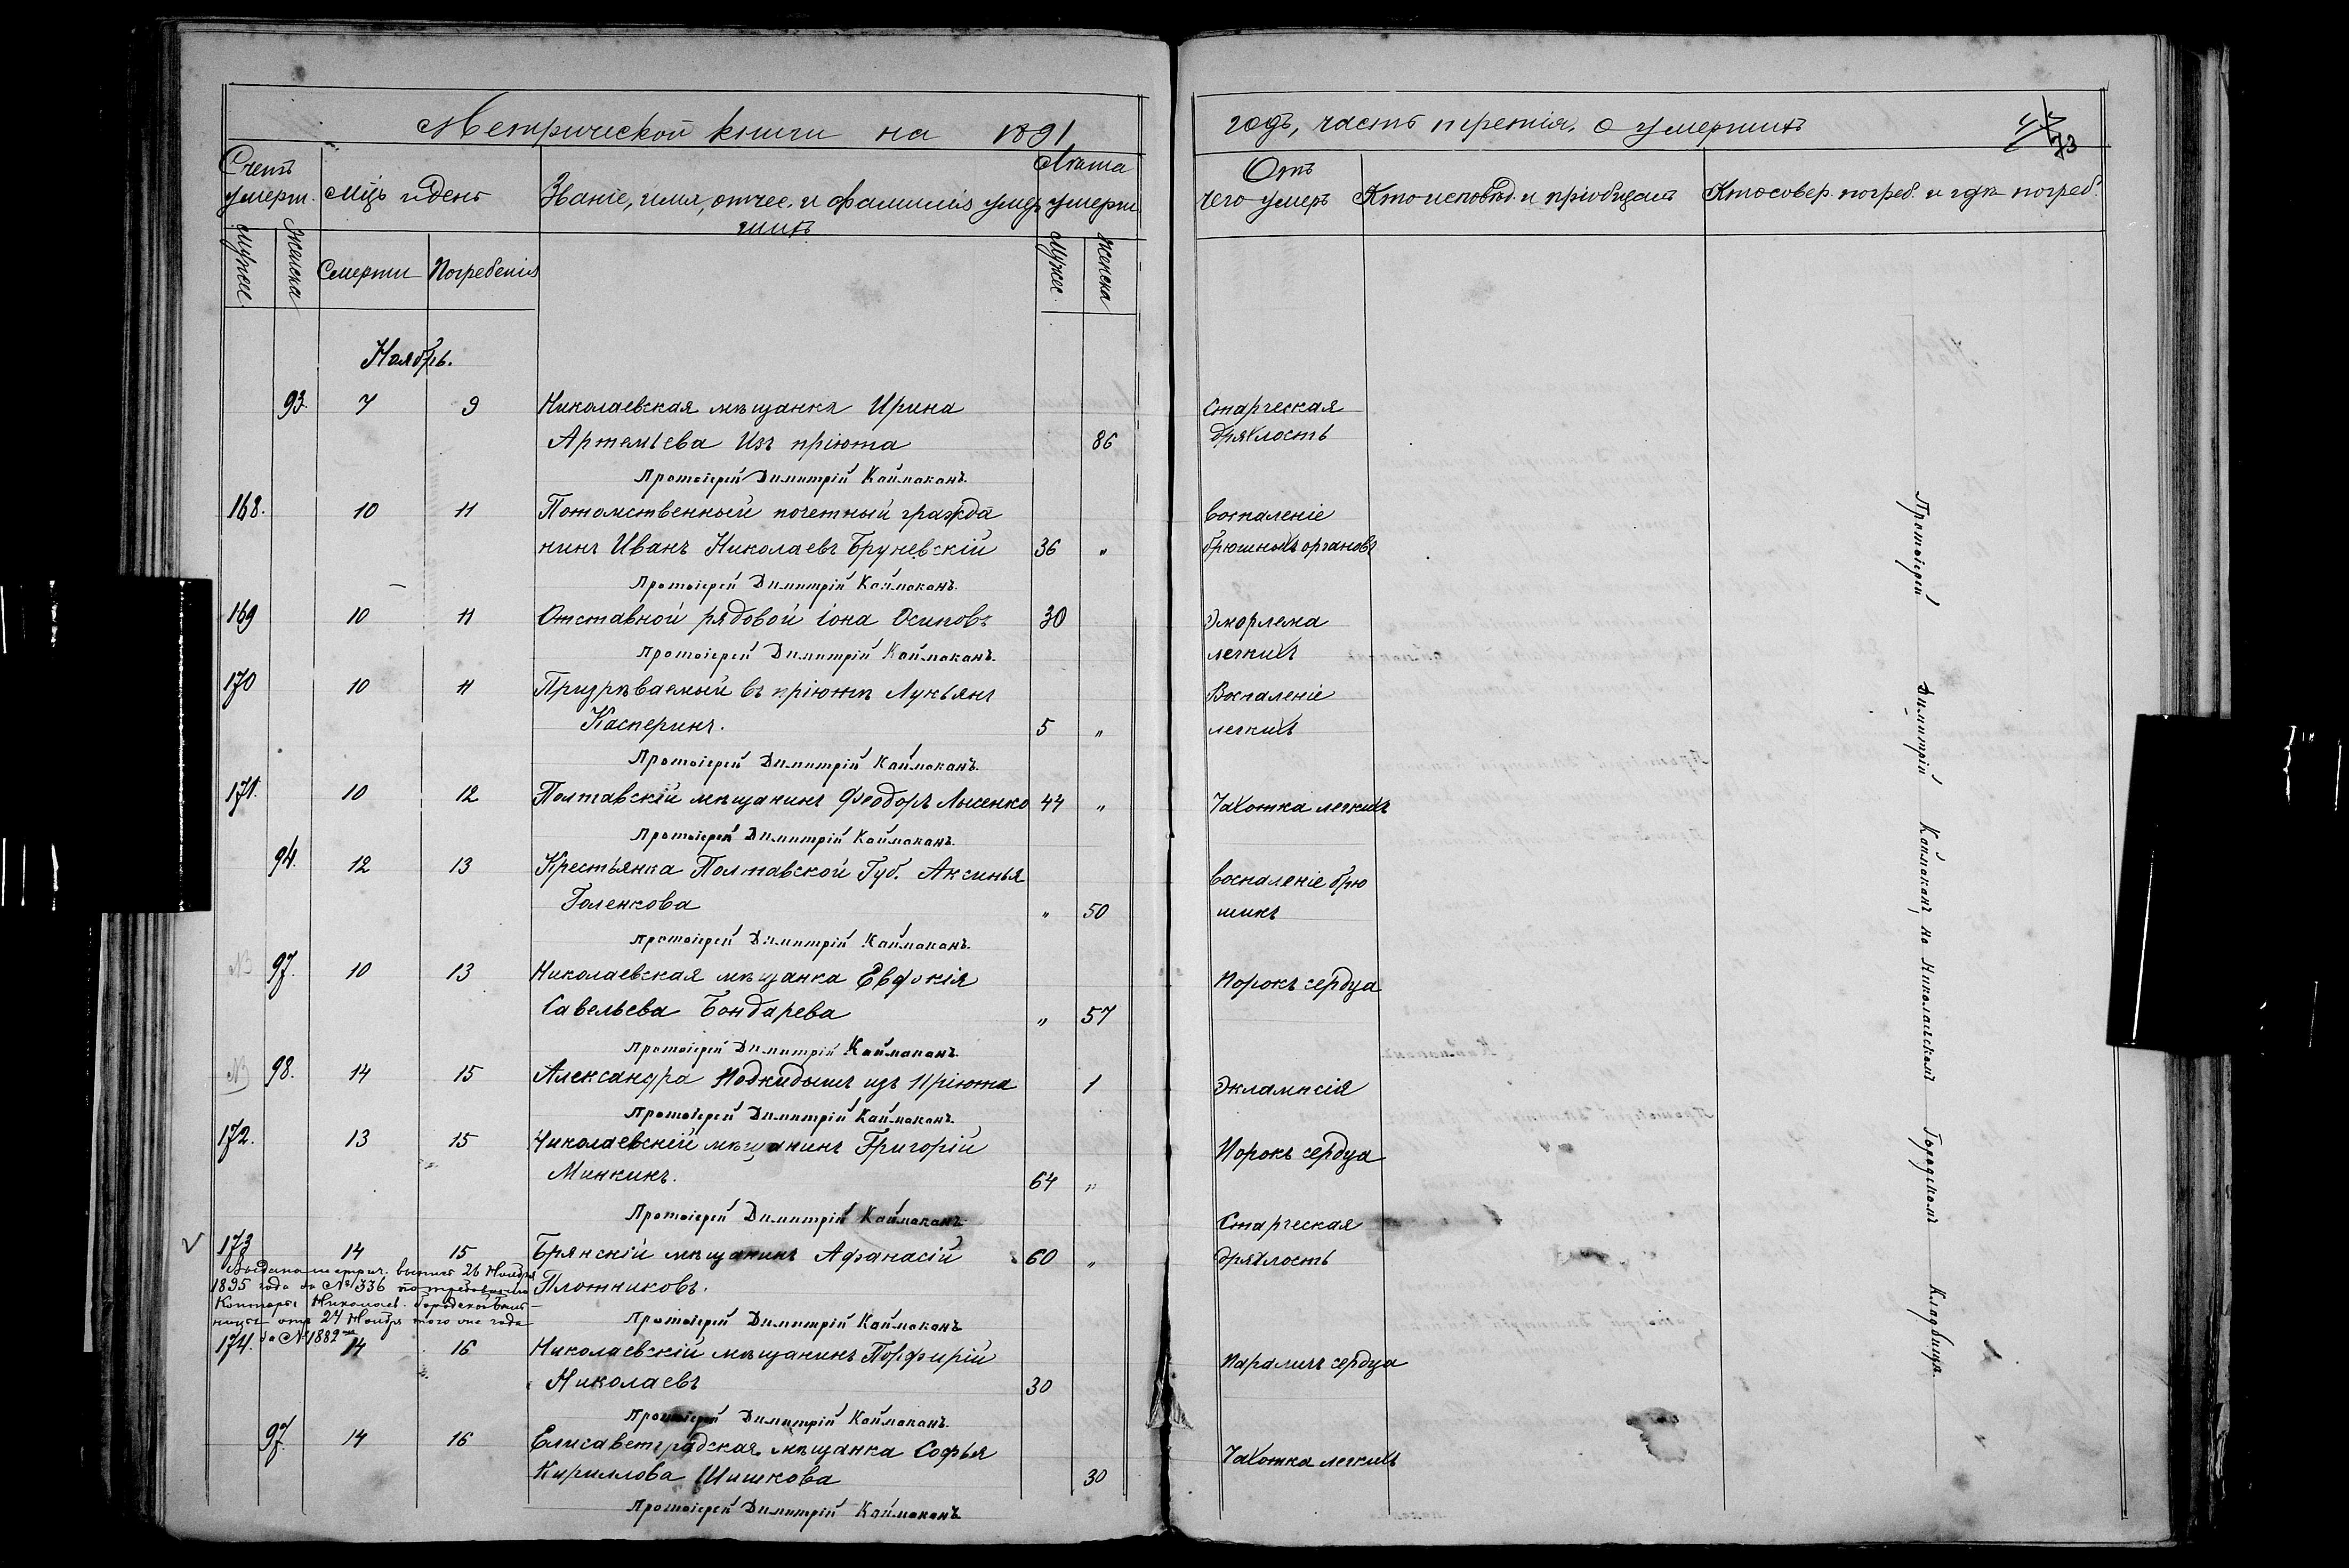 Метрической книги на 1891
годъ, часть третія, о умершихъ
73
Счетъ умерш.
Мѣц. и день
Званіе, имя, отчес. и фамилія умер
шихъ
Лѣта умерш.
Отъ чего умеръ
Кто исповѣд. и пріобщалъ
Кто совер. погреб. и гдѣ погреб.
Мужес.
Женска
Смерти
Погребенія
Мужес.
Женска
Ноябрь.
93. 7 9 Николаевская мѣщанка Ирина Старческая
Артемьева Изъ пріюта 86 дряхлость
Протоіерей Димитрій Каймаканъ.
168. 10 11 Потомственный почетный гражда воспаленіе
нинъ Иванъ Николаевъ Бруневскій 36 „ брюшныхъ органовъ
Протоіерей Димитрій Каймаканъ.
169 10 11 Отставной рядовой Іона Осиповъ 30
легкихъ
Протоіерей Димитрій Каймаканъ.
170 10 11 Призрѣваемый въ пріютѣ Лукьянъ Воспаленіе
Касперинъ. 5 „ легкихъ
Протоіерей Димитрій Каймаканъ.
171. 10 12 Полтавскій мѣщанинъ Феодоръ Лысенко 44 „ Чахотка легкихъ
Протоіерей Димитрій Каймаканъ.
94. 12 13 Крестьянка Полтавской Губ. Аксинья воспаленіе брю
Голенкова „ 50 шинъ
Протоіерей Димитрій Каймаканъ.
NB 97. 10 13 Николаевская мѣщанка Евдокія Порокъ сердца
Савельева Бондарева „ 57
Протоіерей Димитрій Каймаканъ.
NB 98. 14 15 Александра Подкидышъ изъ Пріюта 1 Эклампсія
Протоіерей Димитрій Каймаканъ.
172. 13 15 Николаевскій мѣщанинъ Григорій Порокъ сердца
Минкинъ. 64 „
Протоіерей Димитрій Каймаканъ.
173 14 15 Брянскій мѣщанинъ Афанасій 60 „ Старческая дряхлость
Плотниковъ.
Выдана метрич. выпись 26 Ноября
1895 года за № 1336 по требованію
Конторы Николаев. Городской Боль-
ницы отъ 24 Ноября того же года
за № 1882
Протоіерей Димитрій Каймаканъ
174. 14 16 Николаевскій мѣщанинъ Порфирій Параличъ сердца
Николаевъ 30
Протоіерей Димитрій Каймаканъ.
97. 14 16 Елисаветградская мѣщанка Софья Чахотка легкихъ
Кириллова Шишкова 30
Протоіерей Димитрій Каймаканъ
Протоіерей Димитрій Каймаканъ на Николаевскомъ Городскомъ Кладбищѣ.